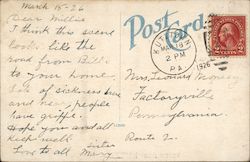 March 15-26
Dear Millie
I think this scene
looks like the
road from Bill
to your home.
Lots of sickness here
and near, people
have grippe.
Hope you and all
Keep well.
Love to all Sister
Mary
Post Card
MAR
2 PM
PA.
1926
Mrs. Leonard
Factoryville
Pennsylvania.
Route 2.
2 CENTS 2